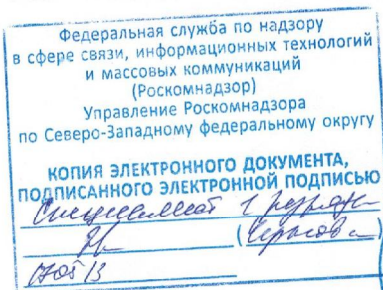 Федеральная служба по надзору
в сфере связи, информационных технологий
и массовых коммуникаций
(Роскомнадзор)
Управление Роскомнадзора
по Северо-Западному федеральному округу
КОПИЯ ЭЛЕКТРОННОГО ДОКУМЕНТА,
ПОДПИСАННОГО ЭЛЕКТРОННОЙ ПОДПИСЬЮ
Специалист 1 разряда